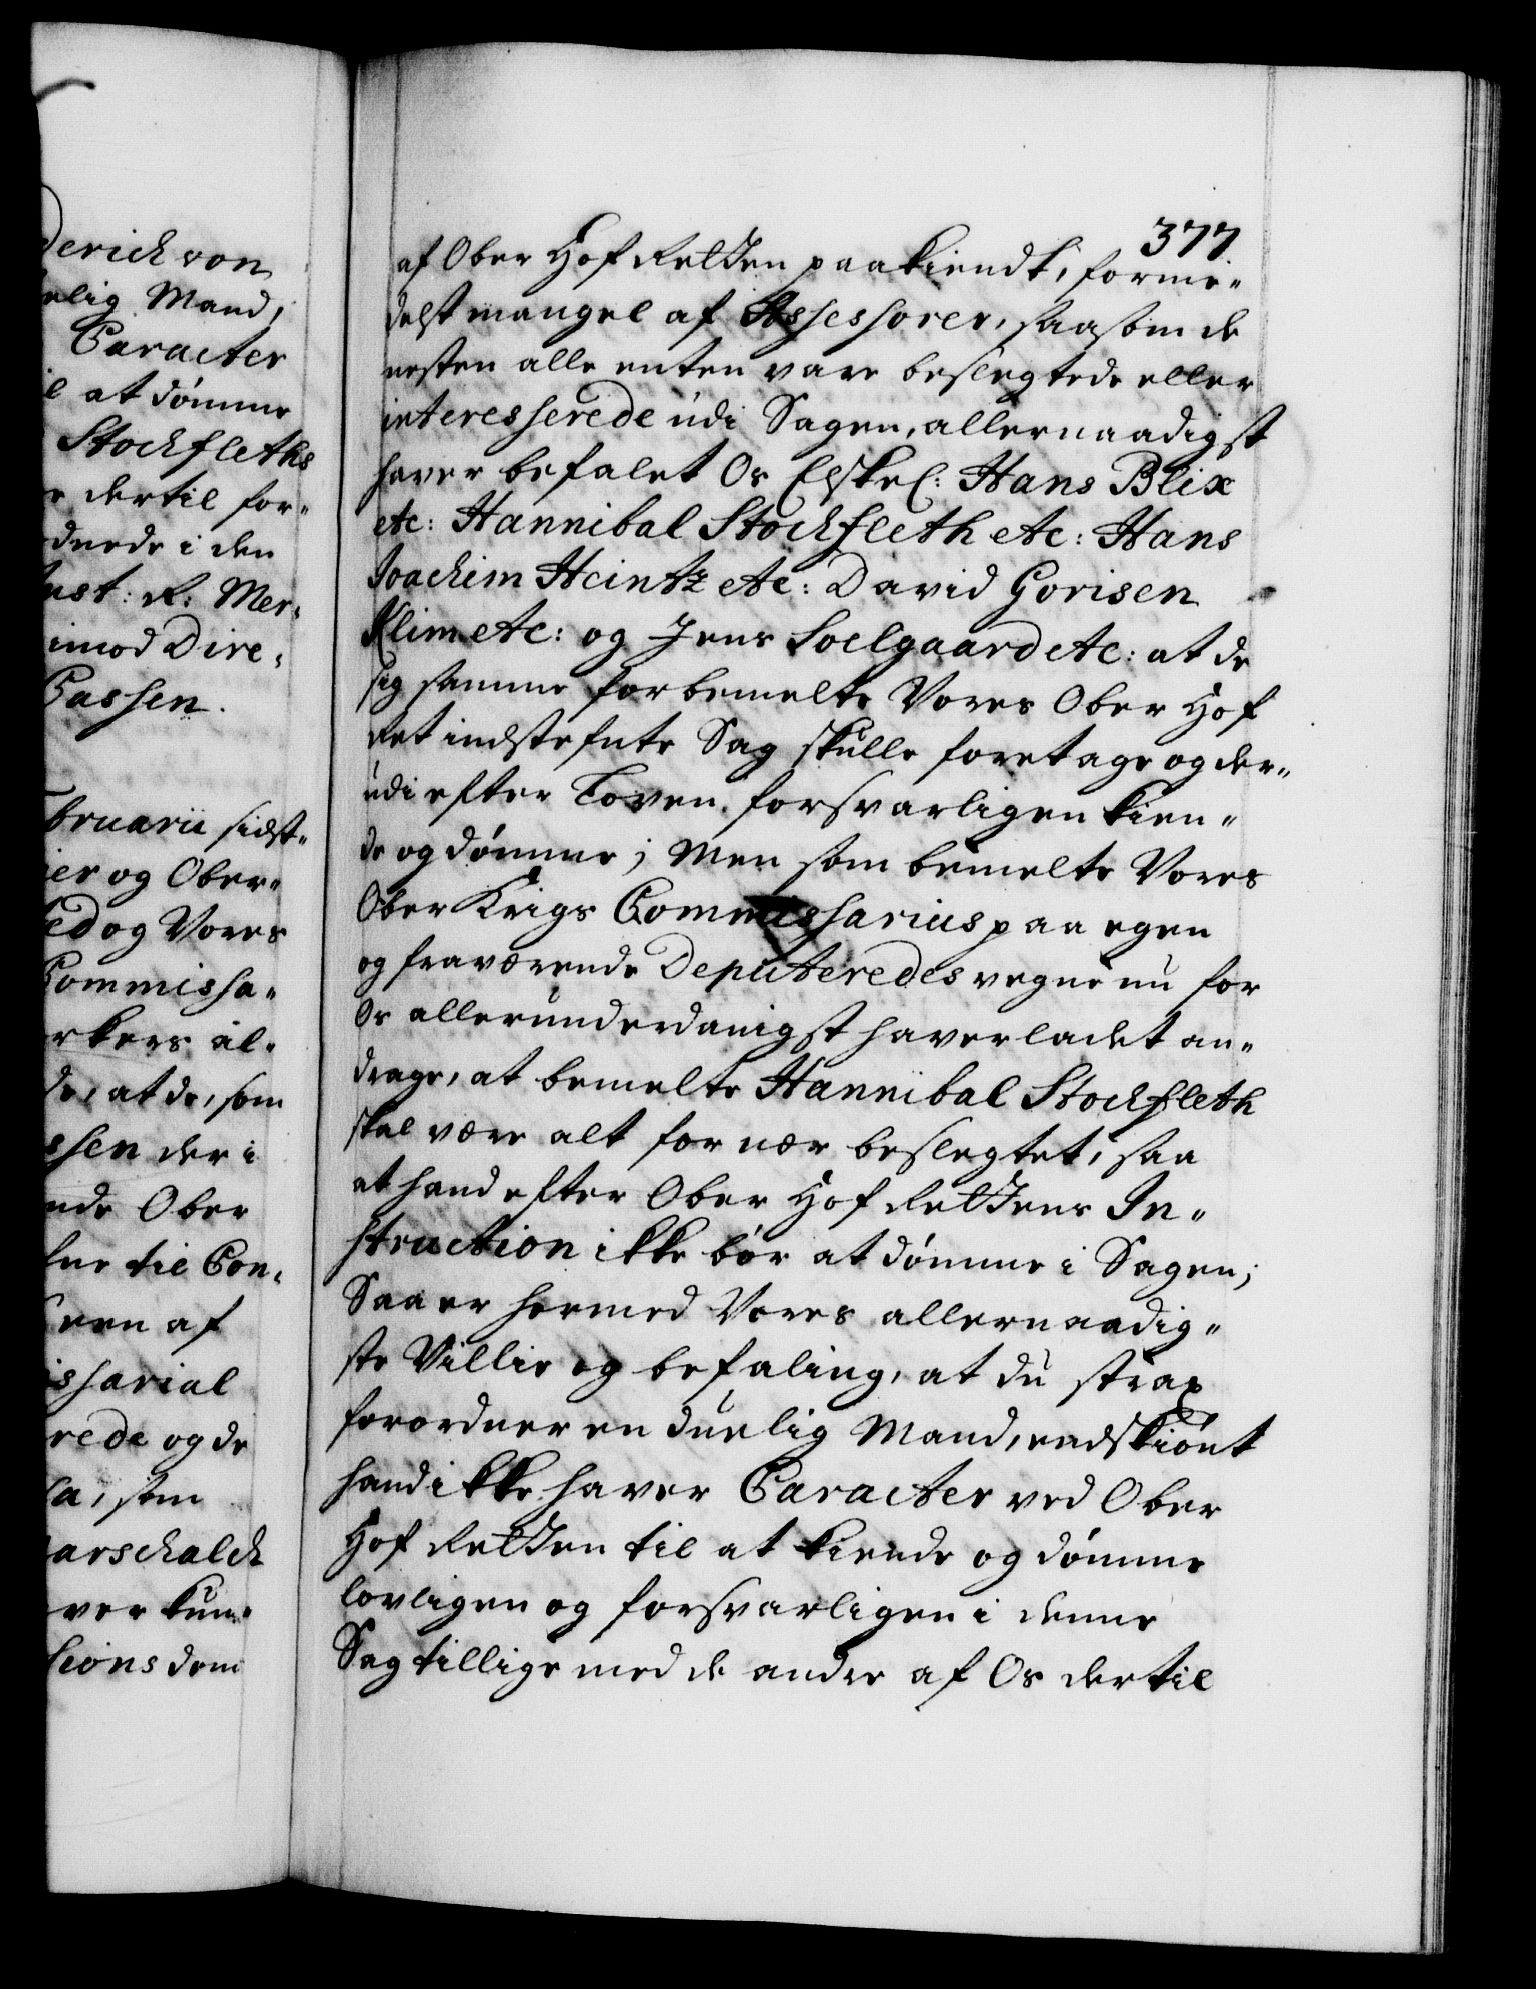 derich von
elig Mand,
Caracter
il at dømme
Stockfleths
dertil for-
dnede i den
Just: R: Mer-
imod Dire-
Cassen.
Februarii sidst-
ier og Ober-
ed og Vores
Commissa-
rkers al-
de, at de, som
ssen der i
nde Ober
lne til Con-
een af
issarial
rede og de
la, som
arschalck
ver kun-
sions dom
377
af Ober Hof Retten paakiendt, forme-
delst mangel af Assessorer, saasom de
nesten alle enten vare beslegtede eller
interesserede udi Sagen, allernaadigst
haver befalet Os Elskel: Hans Blix
etc: Hannibal Stockfleth etc: Hans
Joachim Heintz etc: David Gorisen
Klim etc: og Jens Soelgaard etc: at de
sig samme for bemelte Vores Ober Hof
Ret indstefnte Sag skulle foretage og der-
udi efter Loven forsvarligen kien-
de og dømme; Men som bemelte Vores
Ober Krigs Commissarius paa egen
og fraværende Deputeredes vegne nu for
Os allerunderdanigst haver ladet an-
drage, at bemelte Hannibal Stockfleth
skal være alt for nær beslegtet, saa
at hand efter Ober Hof Rettens In-
struction ikke bør at dømme i Sagen;
Saa er hermed Vores allernaadig-
ste Villie og befaling, at du strax
forordner en duelig Mand, endskiønt
hand ikke haver Caracter ved Ober
Hof Retten til at kiende og dømme
lovligen og forsvarligen i denne
Sag tillige med de andre af Os dertil